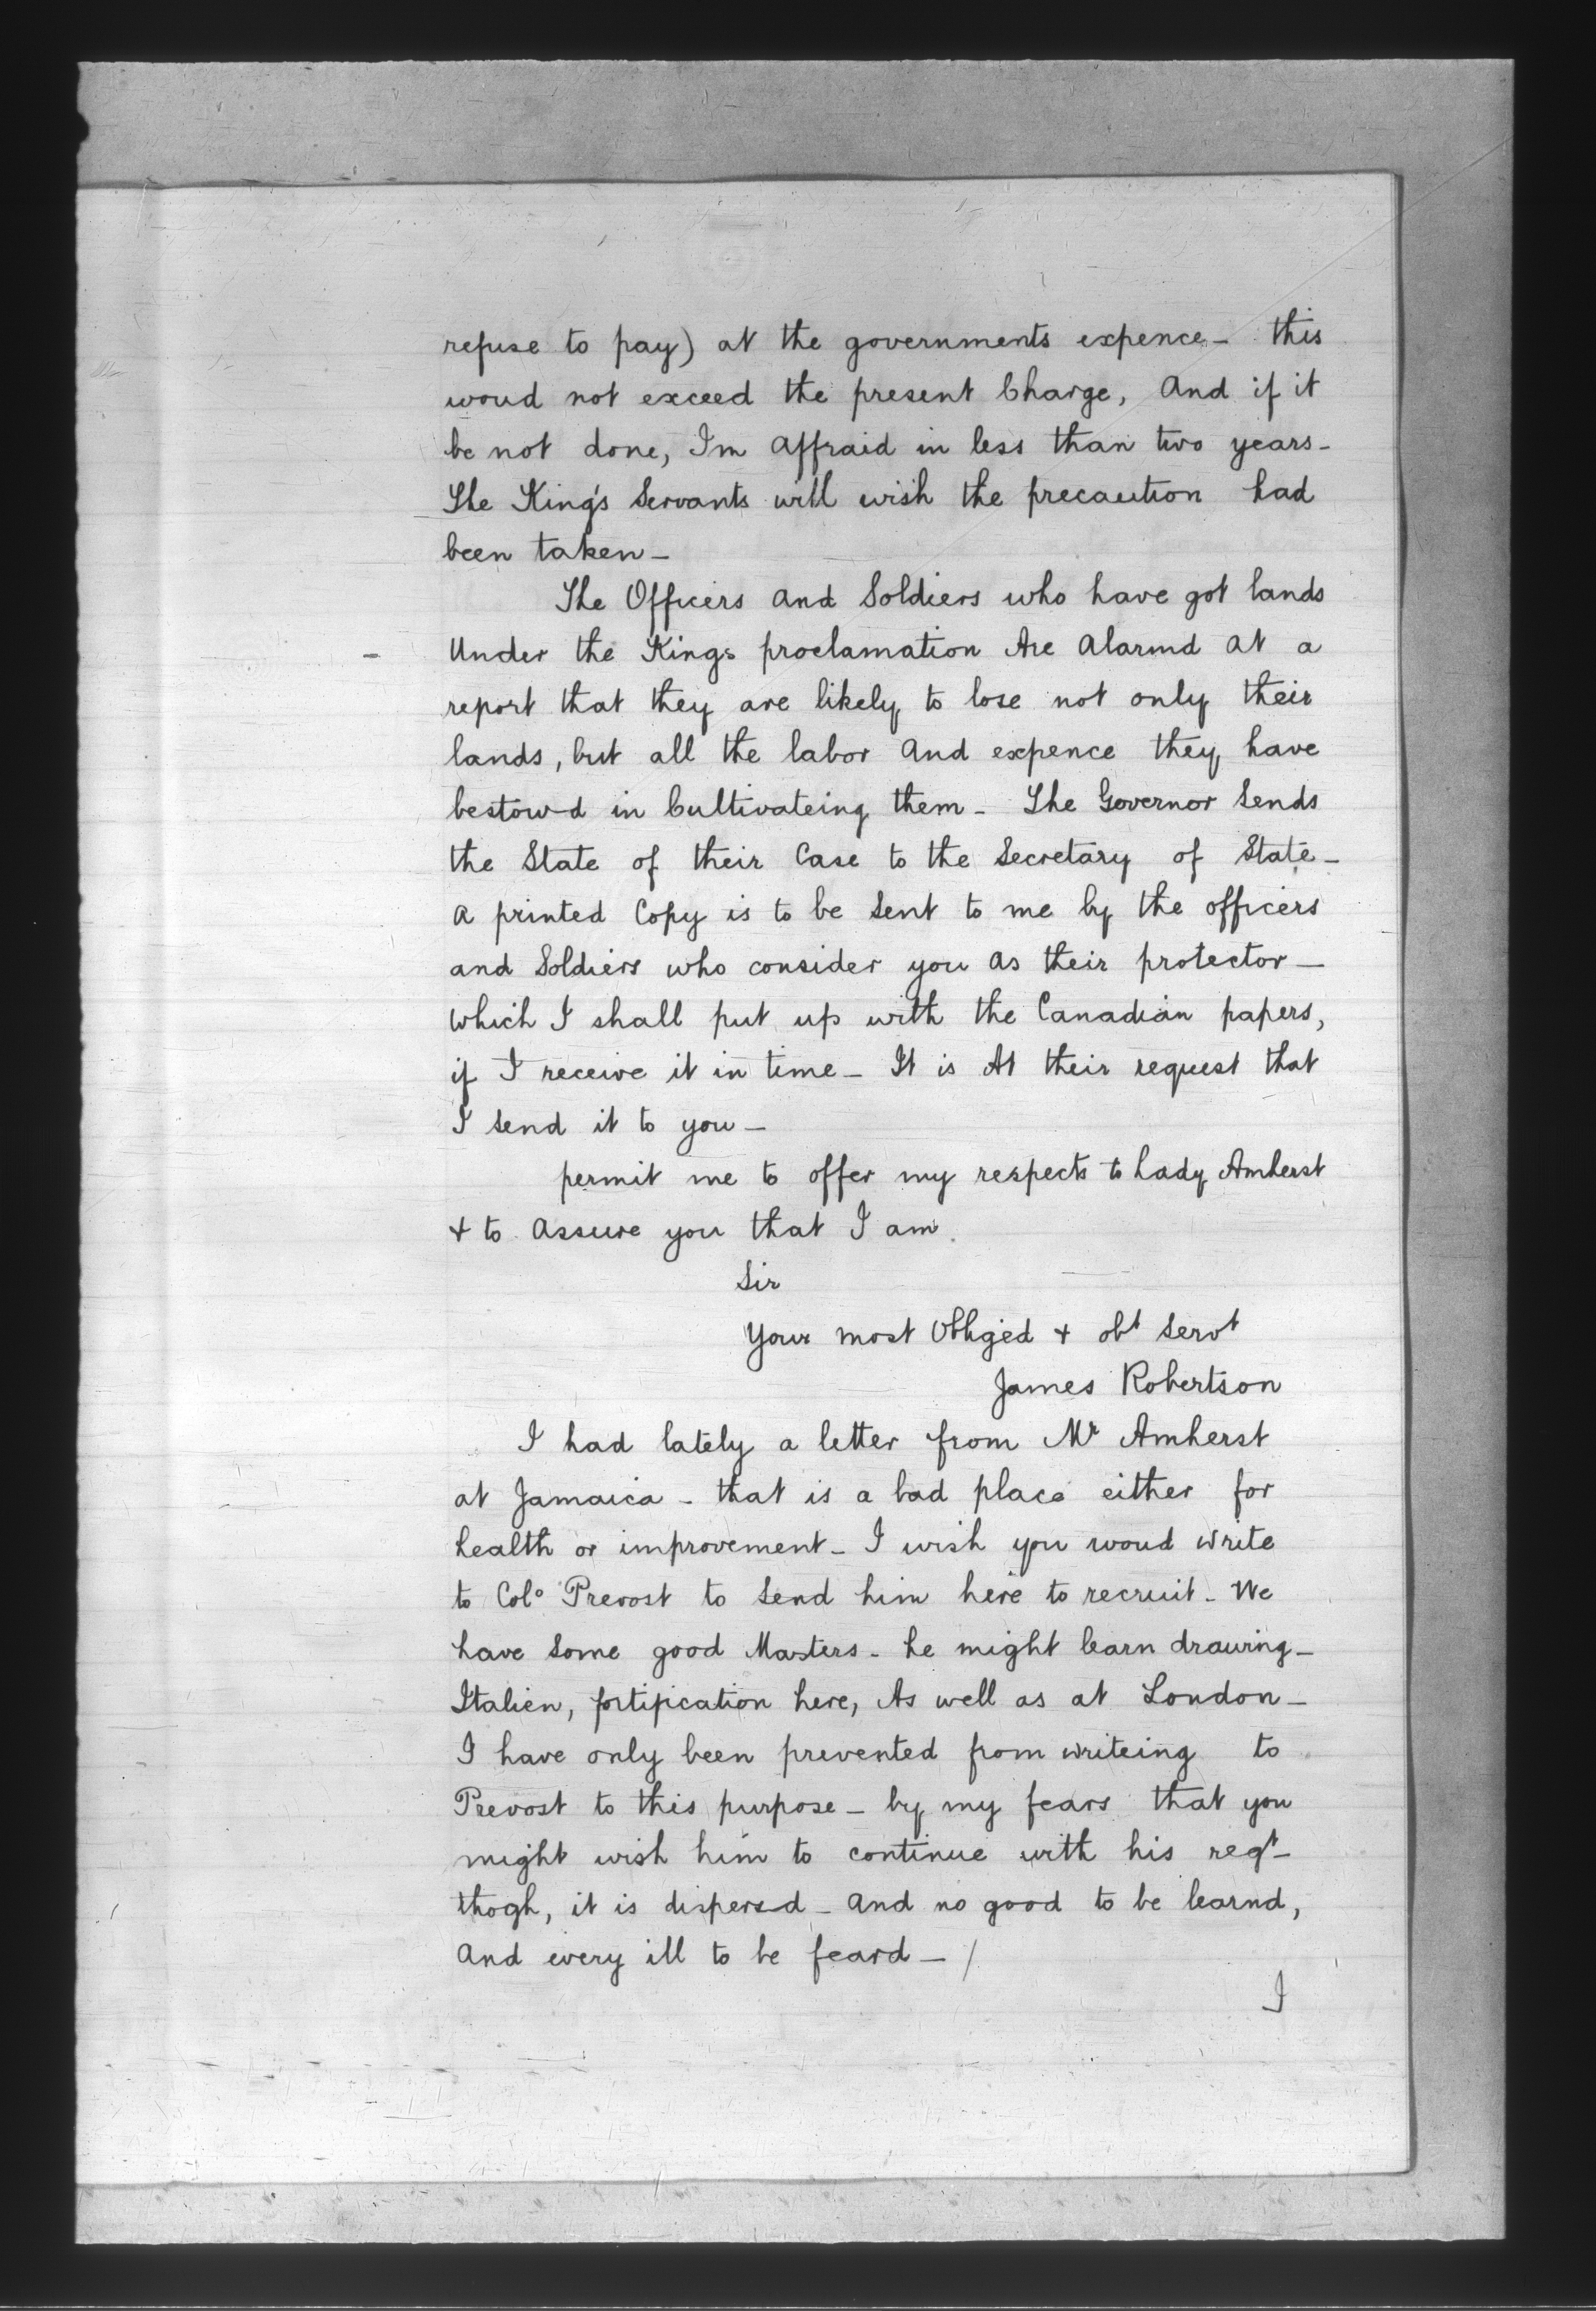 refuse to pay) at the governments expence - this
woud not exceed the present Charge, And if it
be not done, Im affraid in less than two years -
The King's Servants will wish the precaution had
been taken -
The Officers and Soldiers who have got lands
Under the Kings proclamation Are alarmd at a
report that they are likely to lose not only their
lands, but all the labor and expence they have
bestowd in Cultivateing them - The Governor Sends
the State of their Case to the Secretary of State -
a printed Copy is to be Sent to me by the officers
and Soldiers who consider you as their protector -
which I shall put up with the Canadian papers,
if I receive it in time - It is At their request that
I send it to you -
permit me to offer my respects to Lady Amherst
+ to assure you that I am.
Sir
Your most Obliged + obt Servt
James Robertson
I had lately a letter from Mr Amherst
at Jamaica - that is a bad place either for
health or improvement - I wish you woud write
to Colo Prevost to Send him here to recruit - We
have Some good Masters - he might learn drawing -
Italien, fortification here, As well as at London -
I have only been prevented from writeing to
Prevost to this purpose - by my fears that you
might wish him to continue with his regt -
thogh, it is dispersd - and no good to be learnd,
And every ill to be feard - /
I